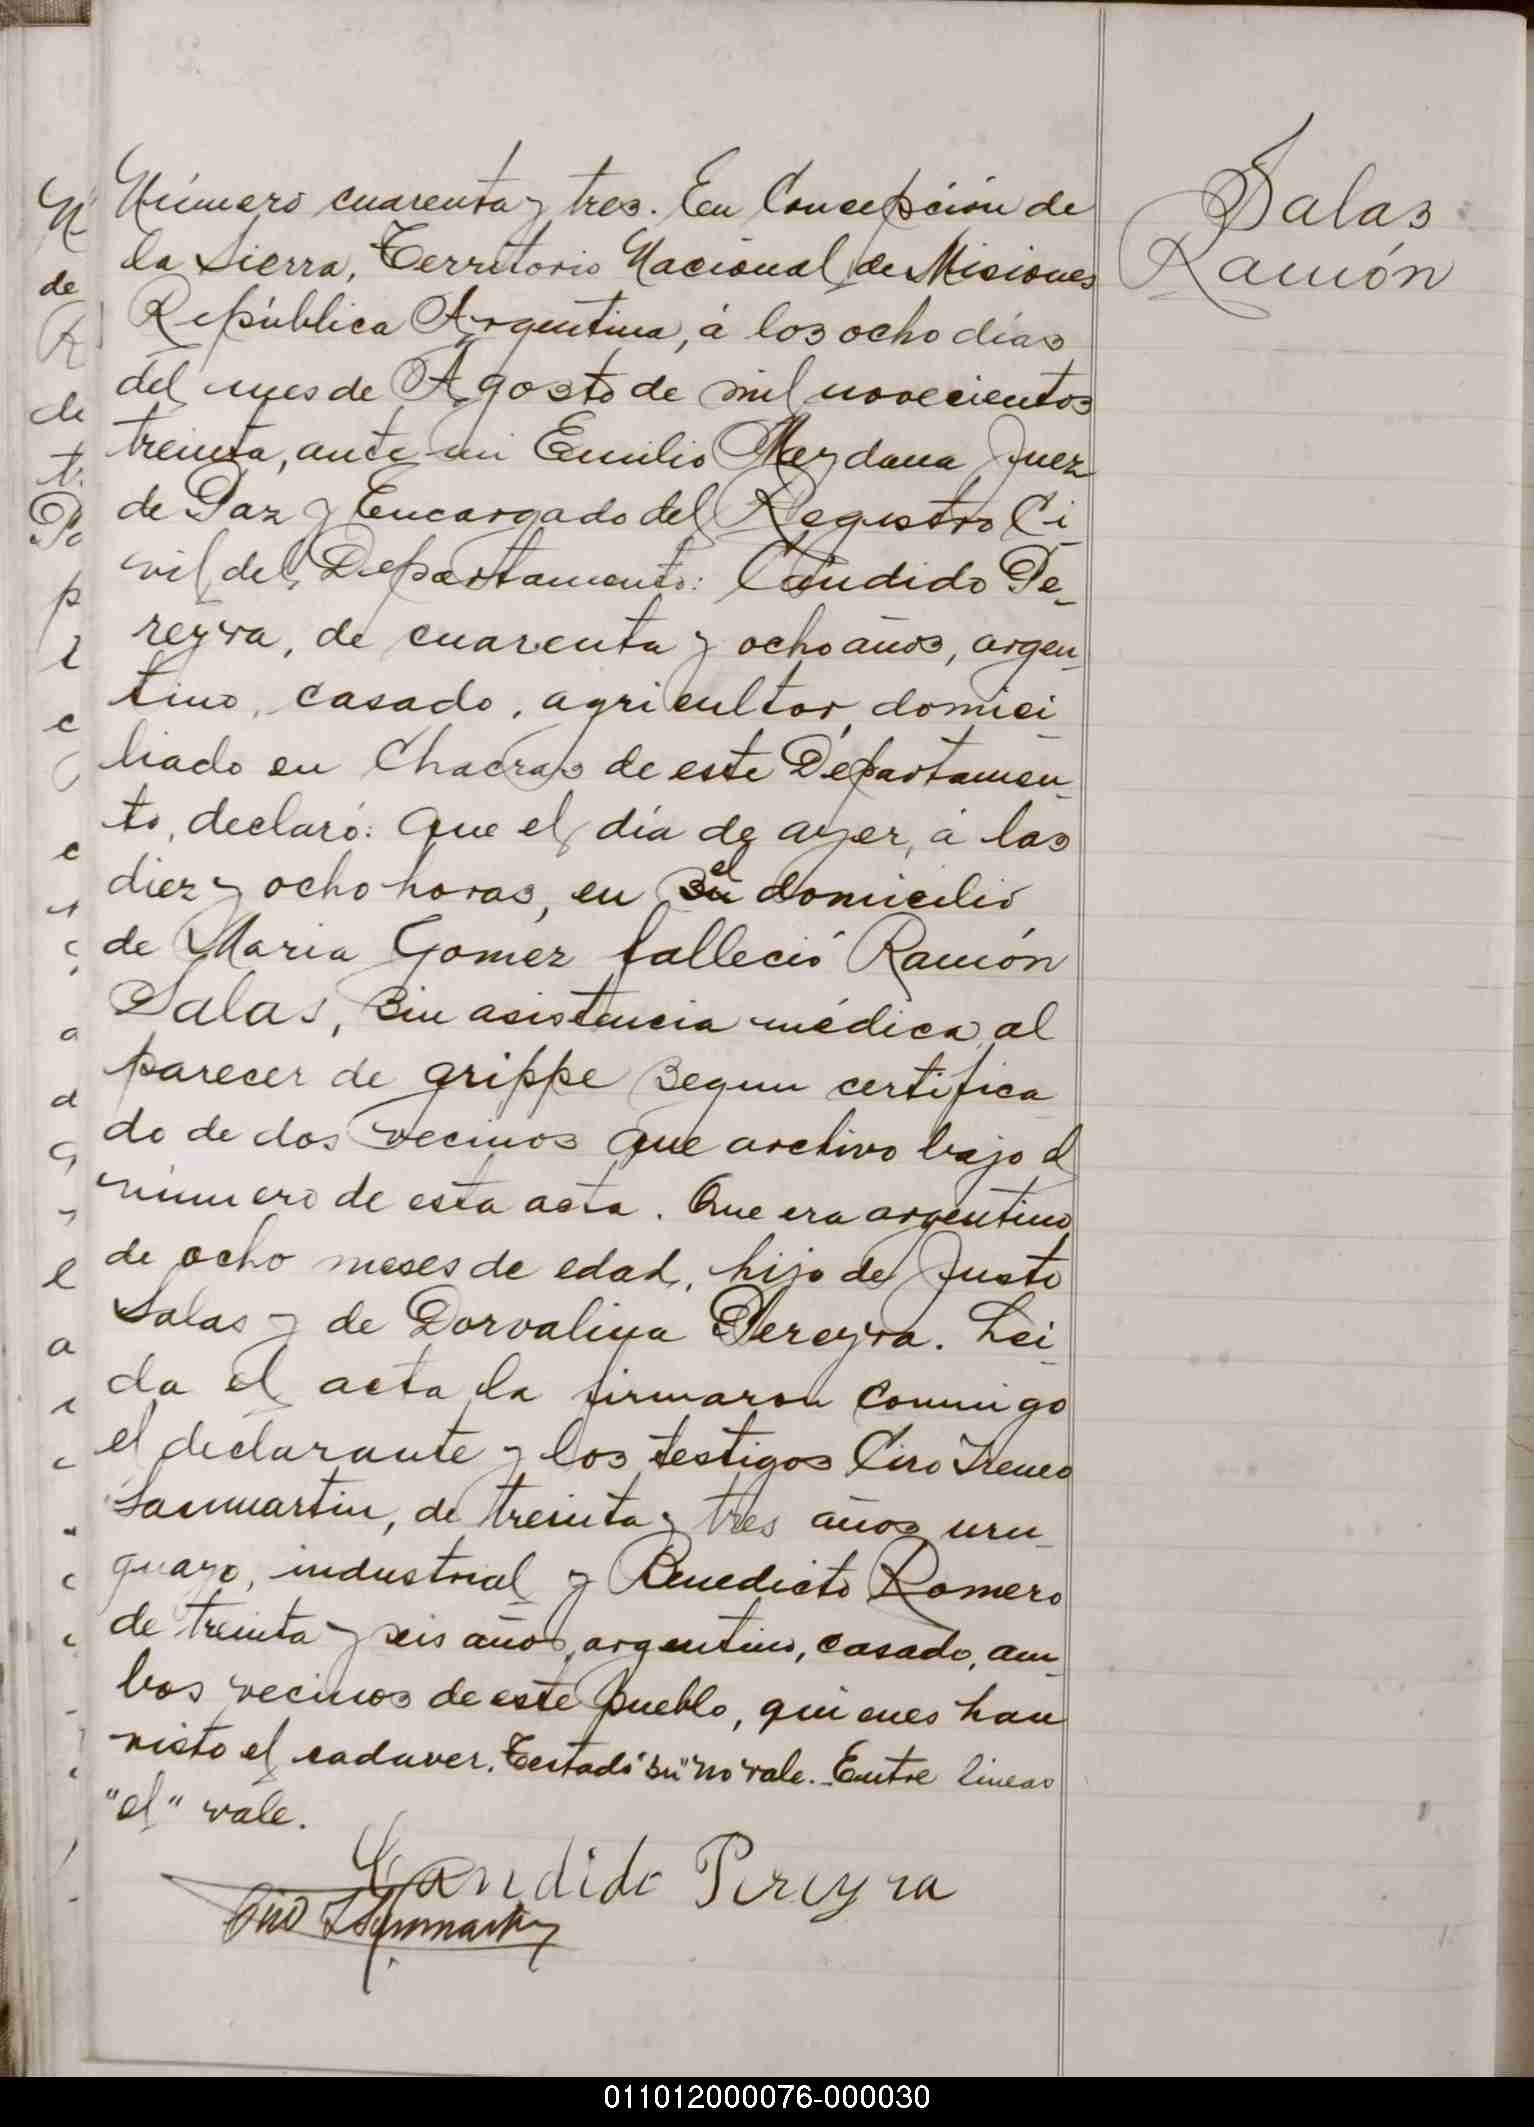 Número cuarenta y tres. En Concepción de
la Sierra, Territorio Nacional de Misiones
República Argentina, á los ocho días
del mes de Agosto de mil novecientos
treinta, ante mi Emilio Meydana Juez
de Paz y Encargado del Registro Ci-
vil del Departamento: Cándido Pe-
reyra, de cuarenta y ocho años, argen-
tino, casado, agricultor, domici-
liado en Chacras de este Departamen-
to, declaró: Que el día de ayer, á las
diez y ocho horas, en su el domicilio
de Maria Gomez falleció Ramón
Salas, sin asistencia médica, al
parecer de grippe segun certifica
do de dos vecinos que archivo bajo el
número de esta acta. Que era argentino
de ocho meses de edad, hijo de Justo
Salas y de Dorvalina Pereyra. Lei-
da el acta la firmaron conmigo
el declarante y los testigos Ciro Ireneo
Sanmartin, de treinta y tres años uru-
guayo, industrial y Benedicto Romero
de treinta y seis años, argentino, casado, am-
bos vecinos de este pueblo, quienes han
visto el cadaver. Testado "su" no vale. Entre lineas
"el" vale.
Candido Pereyra
Ciro I Sanmartin
Salas
Ramón
011012000076-000030